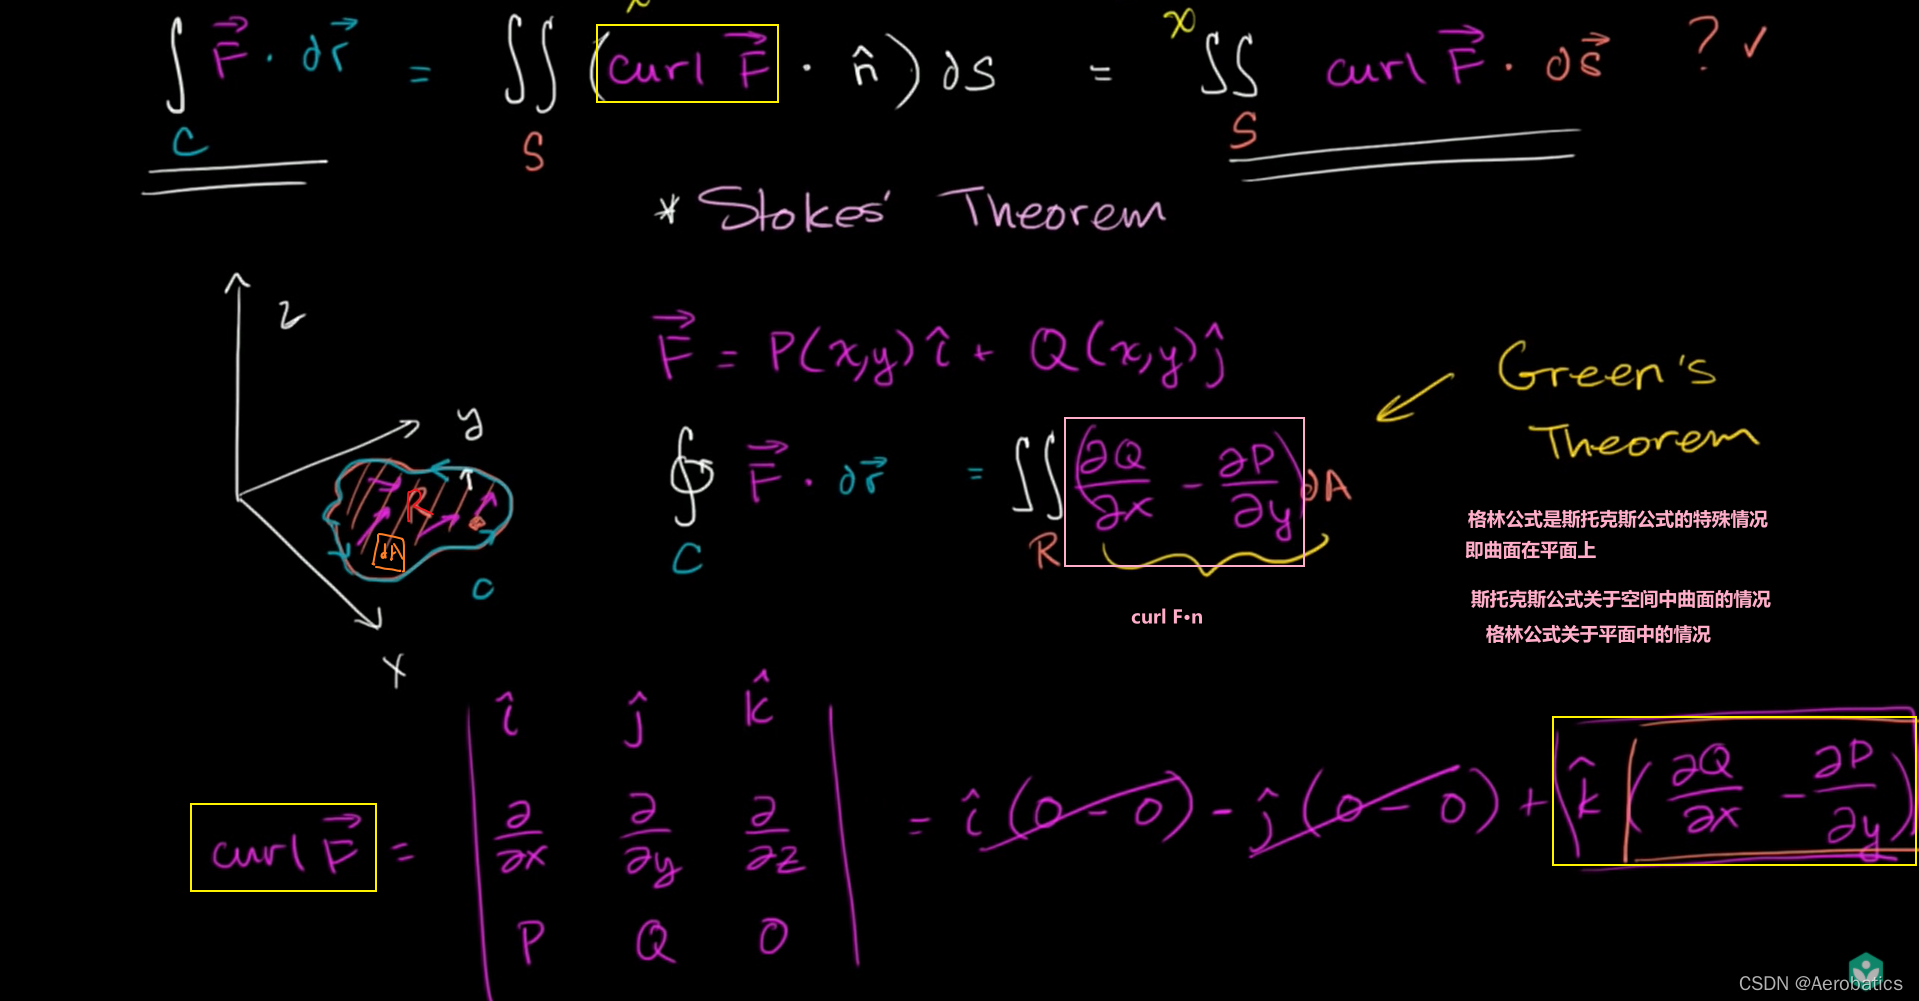 ∫_C F⃗ · dr⃗ = ∬_S (curl F⃗ · n̂) ds = ∬_S curl F⃗ · ds⃗ ? ✓
* Stokes' Theorem
z
y
x
R
dA
C
F⃗ = P(x,y) î + Q(x,y) ĵ
∮_C F⃗ · dr⃗ = ∬_R (∂Q/∂x − ∂P/∂y) dA
Green's
Theorem
curl F·n
格林公式是斯托克斯公式的特殊情况
即曲面在平面上
斯托克斯公式关于空间中曲面的情况
格林公式关于平面中的情况
î ĵ k̂
curl F⃗ = | ∂/∂x ∂/∂y ∂/∂z | = î (0 − 0) − ĵ (0 − 0) + k̂ (∂Q/∂x − ∂P/∂y)
P Q 0
CSDN @Aerobatics